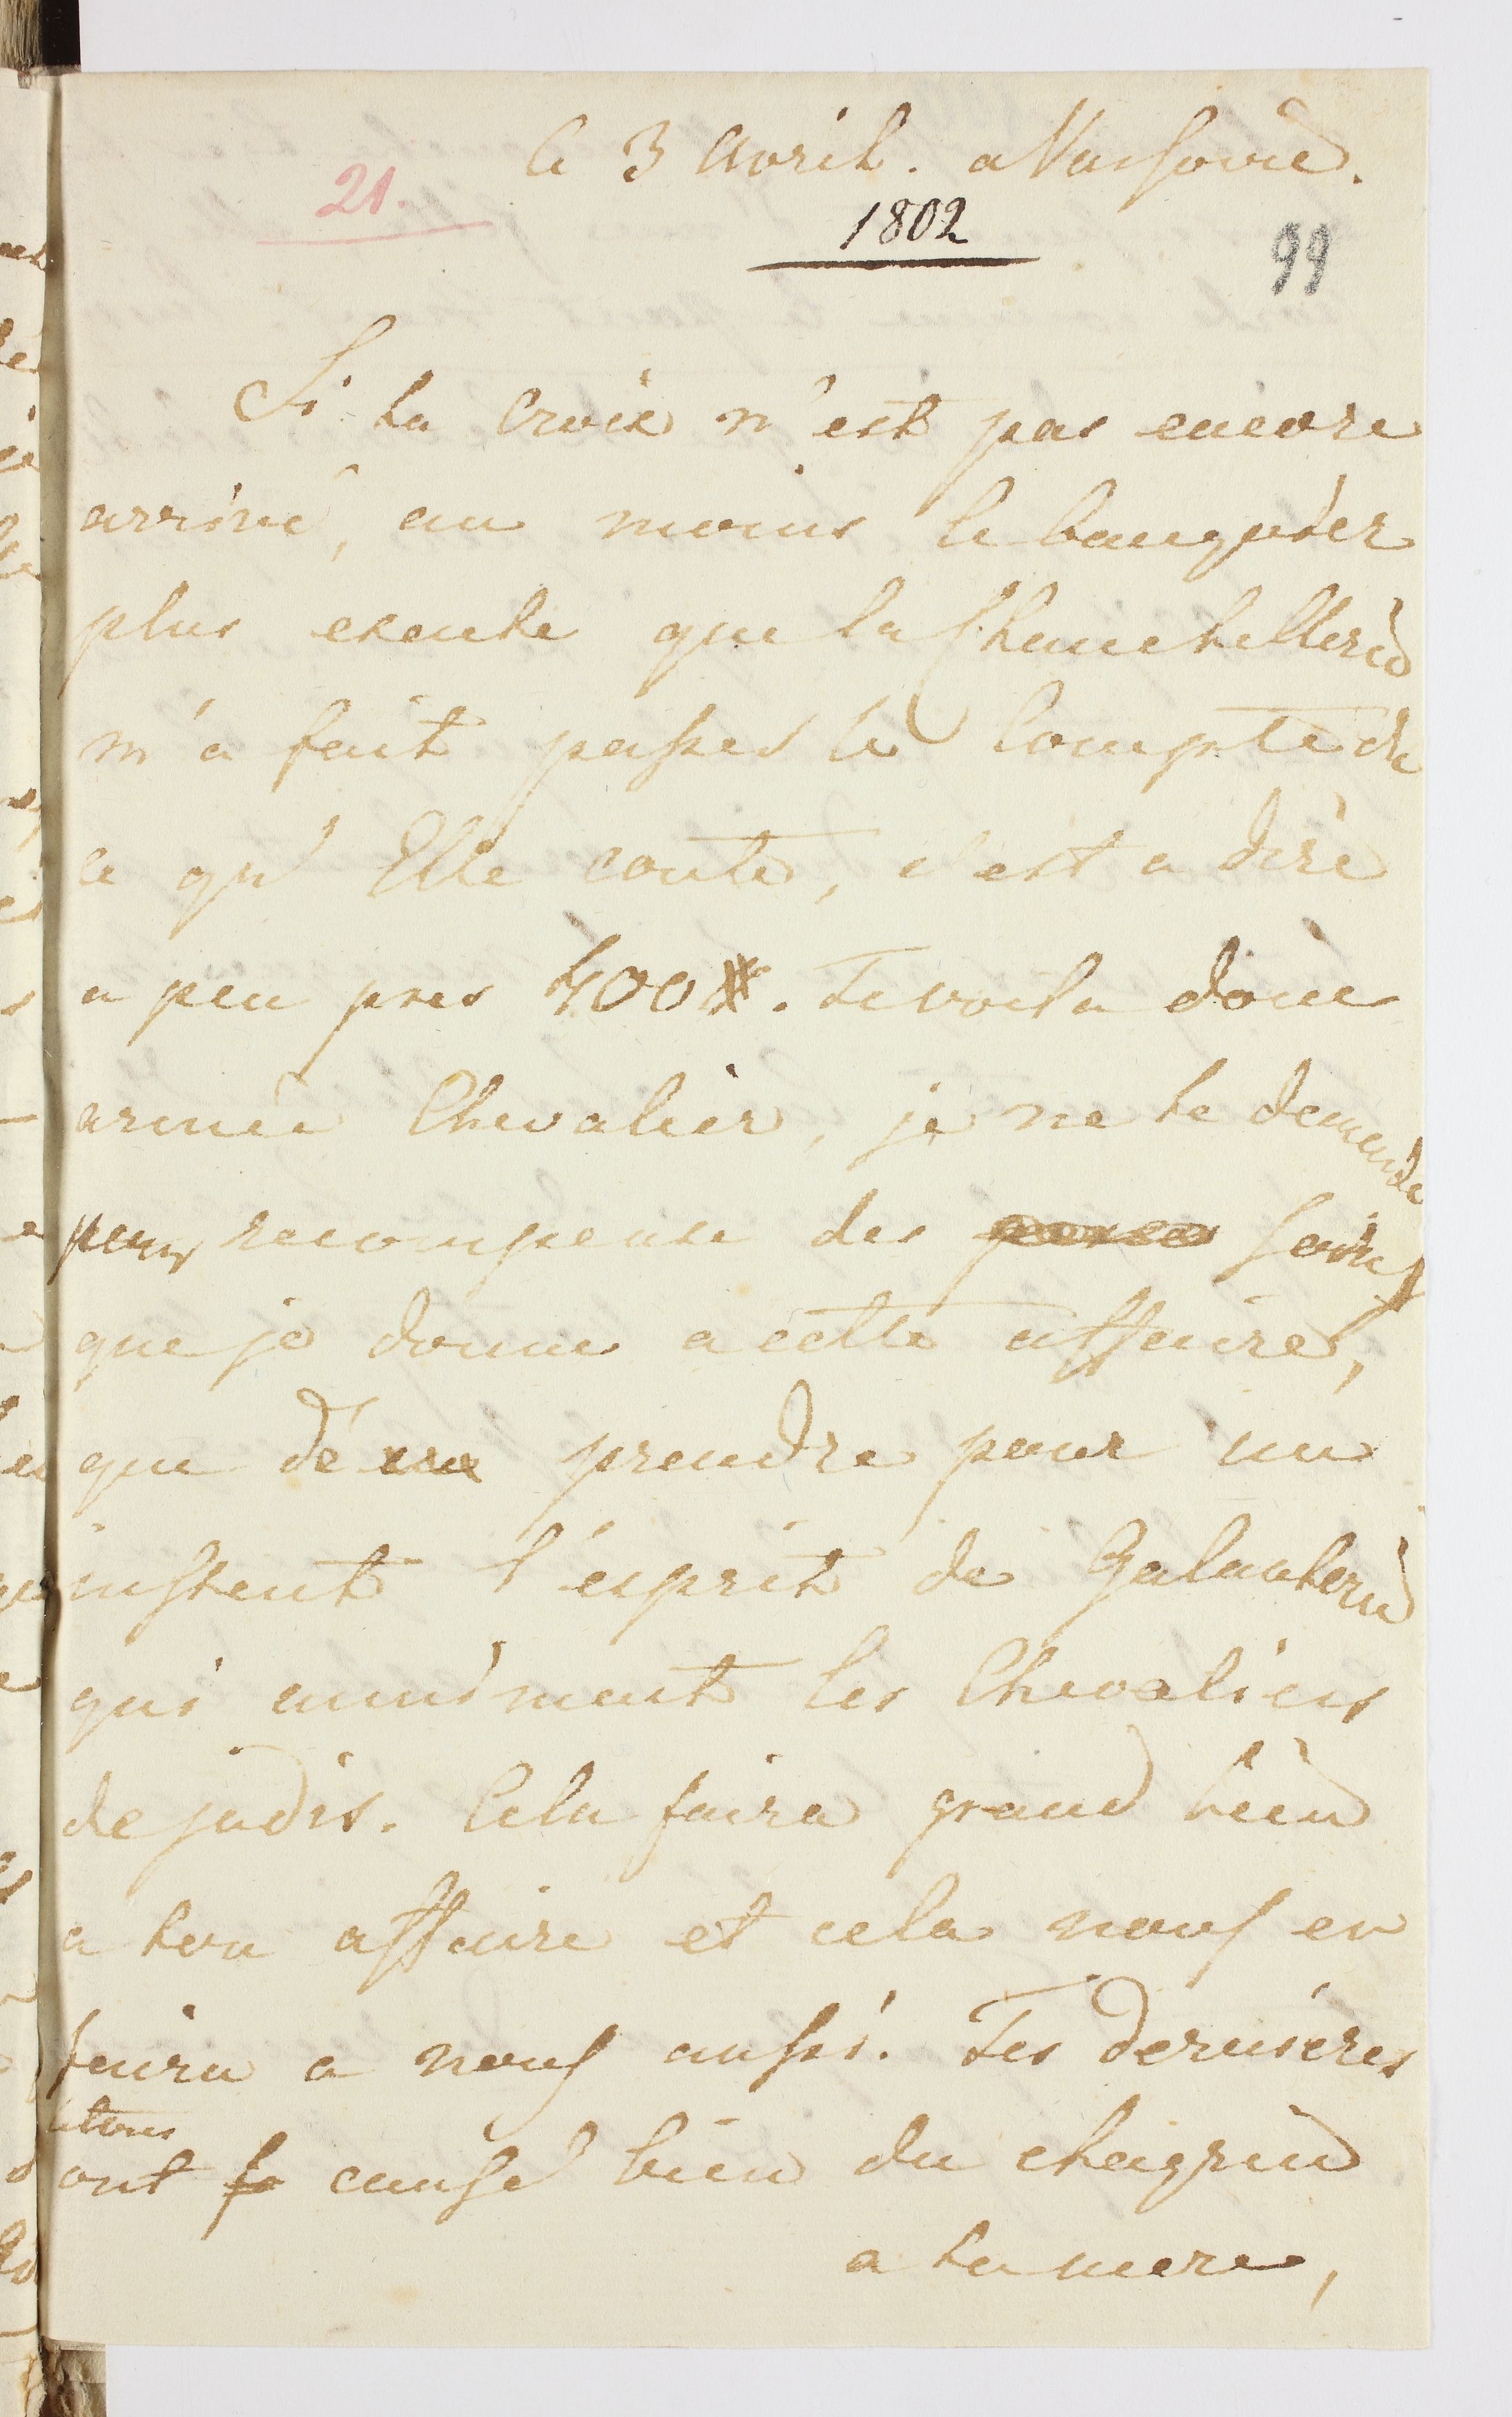 le 3 Avril. a Varsovie.
21.
1802
99
Si ta Croix n'est pas encore
arrivé, au moins le banquier
plus exacte que la Chanchellerie
m'a fait passer le Compte de
ce qu'Elle coute, c'est a dire
a peu pres 400#. Te voila donc
armée Chevalier, je ne te demande
pour recompense des soins
que je donne a cette affaire,
que de prendre pour un
instent l'esprit de Galanterie
qui annimait les Chevaliers
de jadis. Cela faira grand bien
a ton affaire et cela nous en
faira a nous aussi. Tes dernieres
lettres
ont causé bien du chagrin
a ta mere,